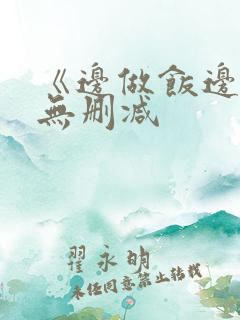 《邊做飯邊
無刪減
翟永明
未经同意禁止转载